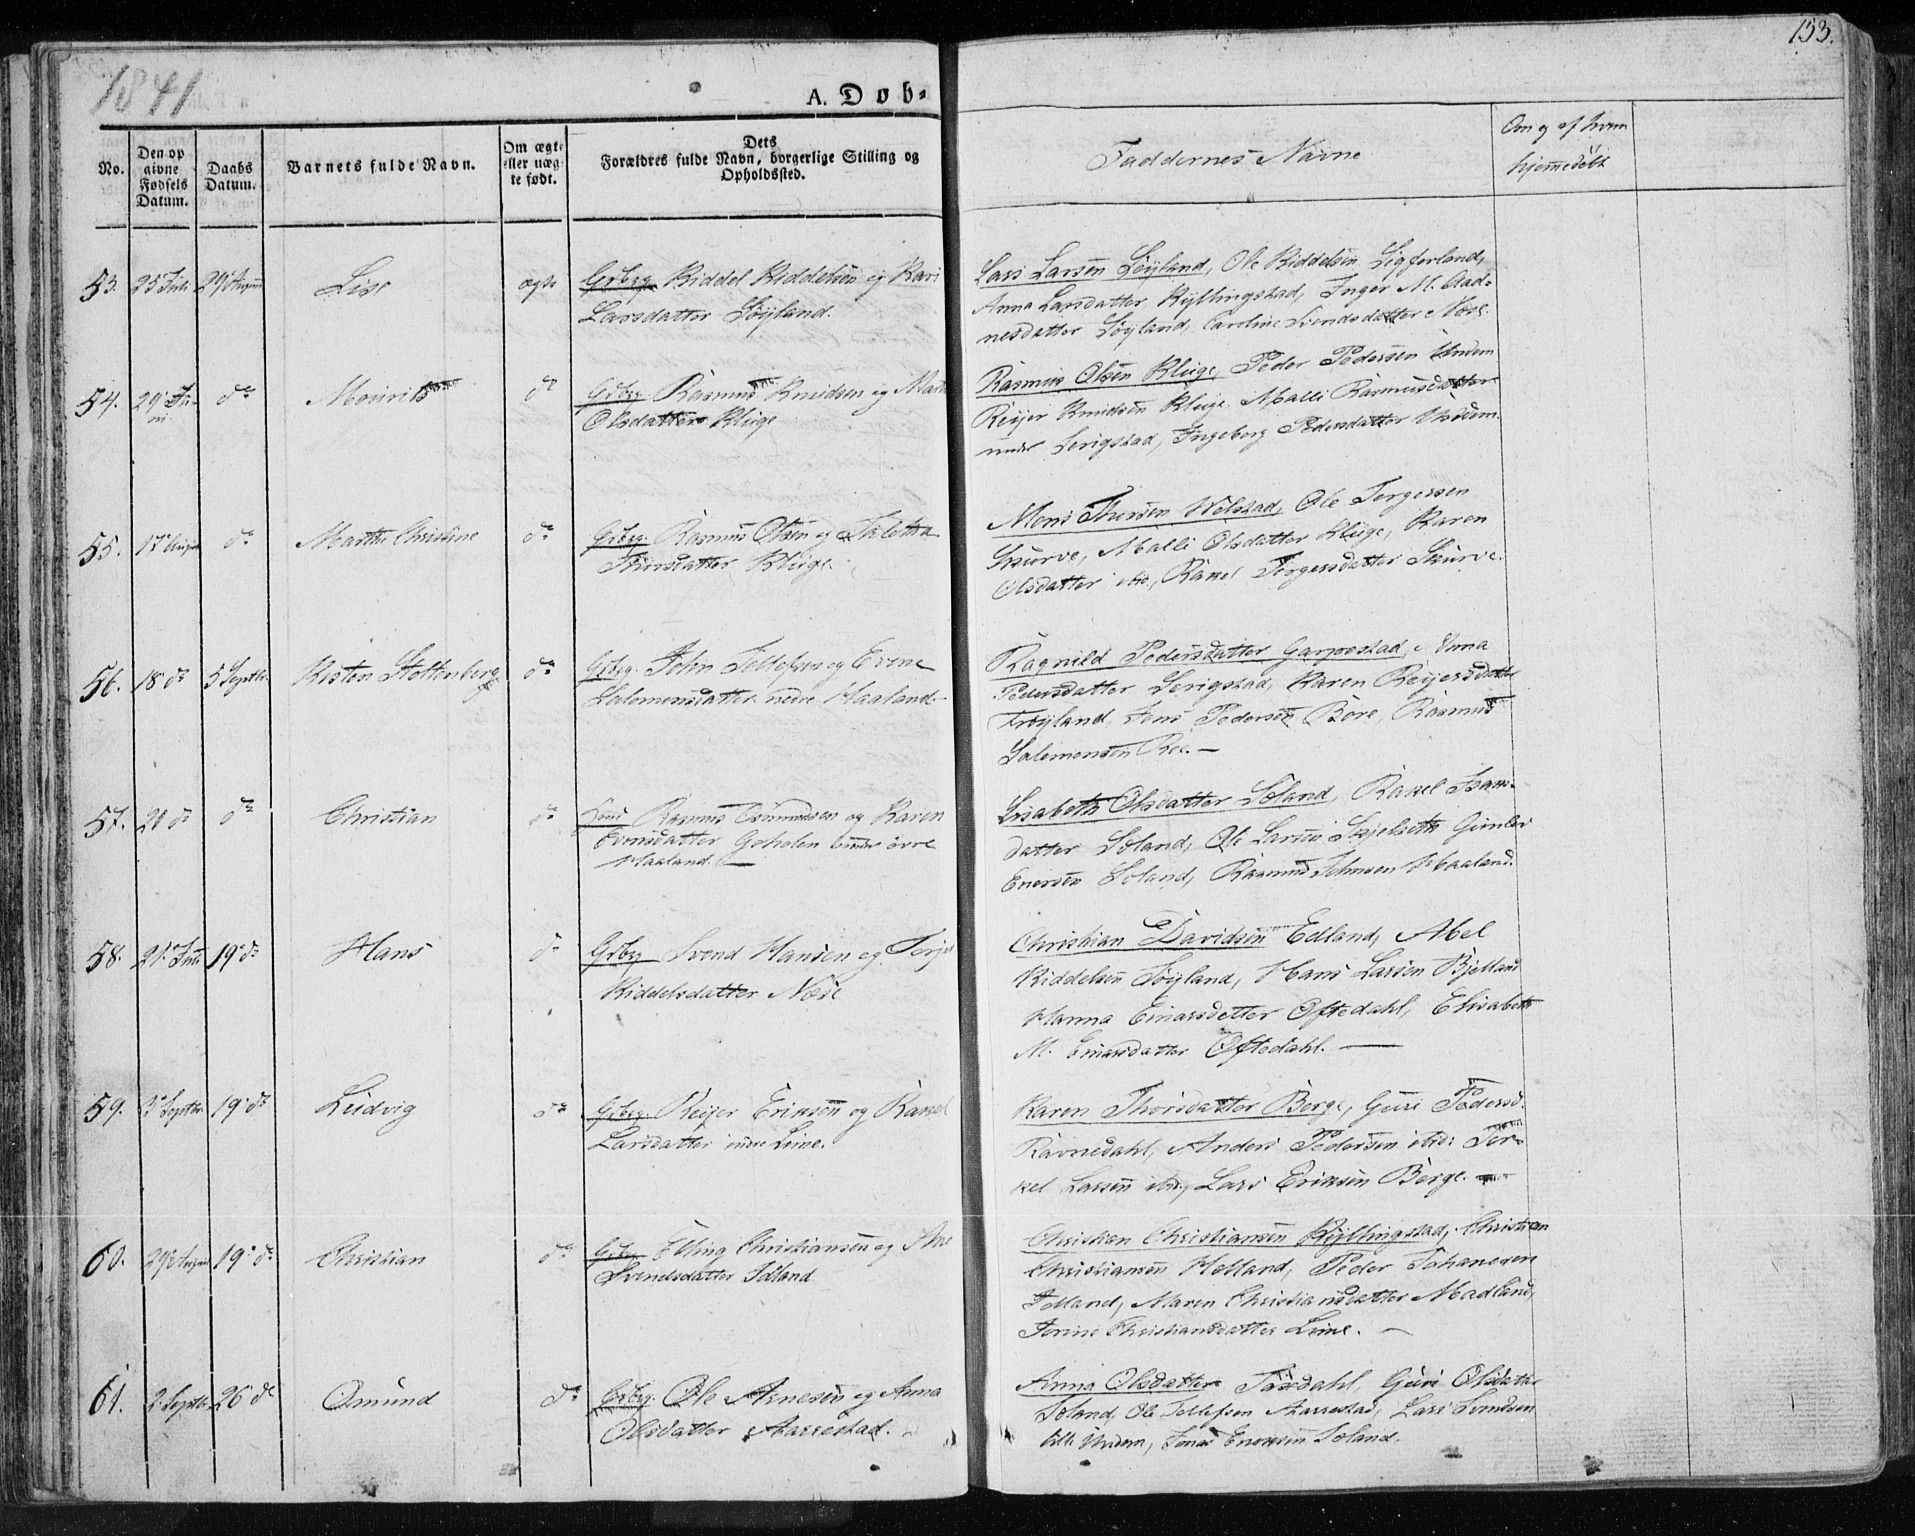 1841
153.
A. Døb-
No.
Den op
givne
Fødsels
Datum.
Daabs
Datum.
Barnets fulde Navn.
Om ægte
eller uæg-
te født.
Dets
Forældres fulde Navn, borgerlige Stilling og
Opholdssted.
Faddernes Navne
Om og af hvem
hjemmedöbt
53. 25 Juli 29 August Lise ægte Gdbrg. Riddel Riddelsen og Kari
Larsdatter Söyland.
Lars Larsen Söyland, Ole Riddelsen
Anna Larsdatter Kyllingstad, Inger M. Aad-
nesdatter Söyland, Caroline Svendsdatter Næse.
54. 29 Ju-
ni do Mouritz do Gdbrg. Rasmus Knudsen og
Olsdatter Kluge
Rasmus Olsen Kluge, Peder Pedersen
Reijer Knudsen Kluge, Malli Rasmusdatter
under Serigstad, Ingeborg Pedersdatter
55. 17 August do Marthe Christine do Gdbrg. Rasmus Olsen og
Thursdatter Kluge
Mons Thursen Welstad, Ole Torgersen
Skurve, Malli Olsdatter Kluge, Karen
Olsdatter ibid, Rakel Torgersdatter Skurve.
56. 18 do 5 Septbr. Kisten Stoltenberg do Gdbrg. John Tollefsen og
Salomonsdatter nedre Haaland
Ragnild Pedersdatter Garpestad, Anna
Pedersdatter Serigstad, Karen Reijersdatter
Fröyland, Jens Pedersen Bore, Rasmus
Salemonsen Ree. —
57. 20 do do Christian do Rasmus Osmundsen og Karen
datter under övre
Haaland. —
Lisabeth Olsdatter Soland, Rakel
datter Soland, Ole Larsen Skjelseth
Soland, Rasmus Johnsen Haaland.
58. 21 19 do Hans do Gdbrg Svend Hansen og
Riddelsdatter Næse
Christian Davidsen Edland, Abel
Riddelsen Söyland, Hans Larsen Bjelland
Hanna Einarsdatter Oftedahl, Elisabeth
M. Einarsdatter Oftedahl. —
59. 3 Septbr. 19 do Ludvig do Gdbrg. Reijer Eriksen og Rakel
Larsdatter Lime.
Karen Thorsdatter Berge, Guri Pedersd.
Ravnedahl, Anders Pedersen ibid: Tor-
kel Larsen ibid, Lars Eriksen Berge. —
60. 29 August 19 do Christian do Gdbrg Elling Christiansen og Ane
Svendsdatter
Christian Christiansen Kyllingstad, Christian
Christiansen Helland, Peder Johanesen
Maren Christiansdatter Madland,
Christiansdatter Lime. —
61. 2 Septbr. 26 do Osmund do Gdbrg. Ole Arnesen og Anna
Olsdatter Aarrestad.
Anna Olsdatter Taxdahl, Guri Olsdatter
Soland, Ole Tollefsen Aarrestad, Lars Svendsen
Jonas Soland.